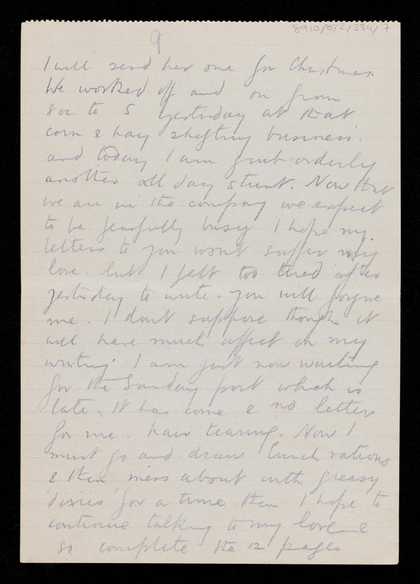 9
I will send her one for Christmas.
We worked off and on from
8oc to 5 yesterday at that
corn & hay shifting business.
and today I am grub orderly
another all day stunt. Now that
we are in the company we expect
to be fearfully busy I hope my
letters to you wont suffer my
love. but I felt too tired after
yesterday to write. you will forgive
me. I dont suppose though it
will have much affect on my
writing. I am just now waiting
for the Sunday post which is
late. It has come & no letter
for me. hair tearing. Now I
must go and draw lunch rations
& then mess about with greasy
'dixies' for a time then I hope to
continue talking to my love &
so complete the 12 pages